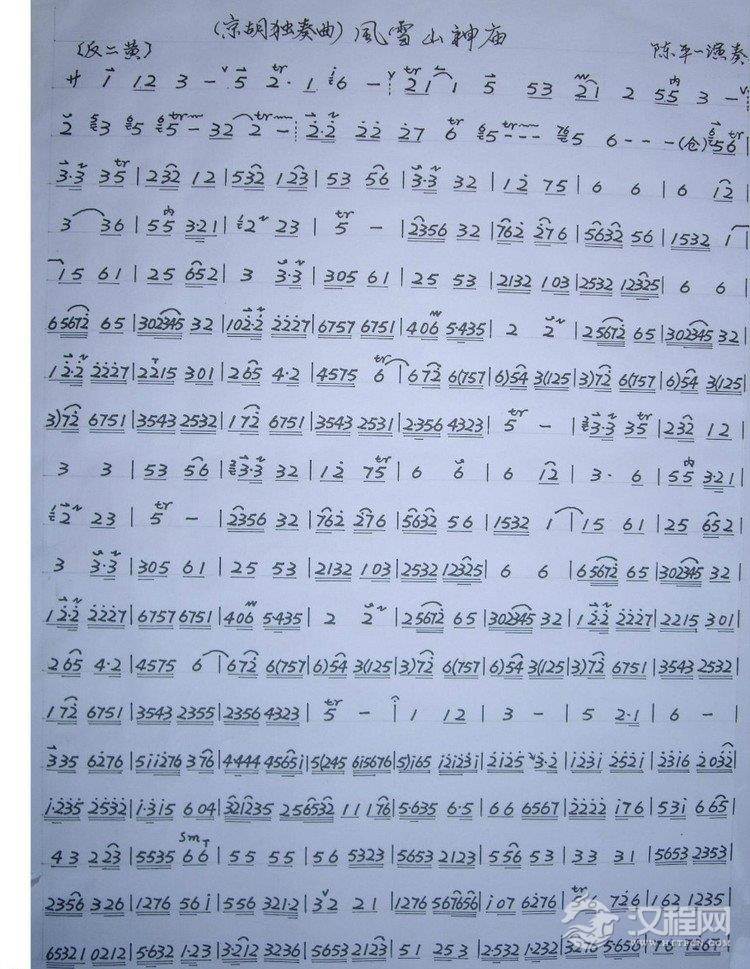 (京胡独奏曲) 風雪山神庙
(反二黄) 陈平一演奏
サ 1 12 3 - v 5 2·1 6 - v 21 1 5 53 21 2 55 3 - v
2 3 5 5 - 32 2 - 2·2 22 27 6 5 - - - 5 6 - - - (仓) 56
3·3 35 | 232 12 | 532 123 | 53 56 | 3·3 32 | 12 75 | 6 6 | 6 12 |
3 36 | 55 321 | 2 23 | 5 - | 2356 32 | 762 276 | 5632 56 | 1532 1 |
15 61 | 25 652 | 3 3·3 | 305 61 | 25 53 | 2132 103 | 2532 12325 | 6 6 |
65672 65 | 302345 32 | 102·2 2227 | 6757 6751 | 406 5·435 | 2 2 | 25672 65 | 302345 32 |
12·2 2227 | 2215 301 | 265 4·2 | 4575 6 | 672 6(757 | 6)54 3(125 | 3)72 6(757 | 6)54 3(125 |
3)72 6751 | 3543 2532 | 172 6751 | 3543 2531 | 2·356 4323 | 5 - | 3·3 35 | 232 12 |
3 3 | 53 56 | 3·3 32 | 12 75 | 6 6 | 6 12 | 3· 6 | 55 321 |
2 23 | 5 - | 2356 32 | 762 276 | 5632 56 | 1532 1 | 15 61 | 25 652 |
3 3·3 | 305 61 | 25 53 | 2132 103 | 2532 12325 | 6 6 | 65672 65 | 302345 32 |
12·2 2227 | 6757 6751 | 406 5·435 | 2 2 | 25672 65 | 302345 32 | 12·2 2227 | 2215 301 |
265 4·2 | 4575 6 | 672 6(757 | 6)54 3(125 | 3)72 6(757 | 6)54 3(125 | 3)72 6751 | 3543 2532 |
172 6751 | 3543 2355 | 2356 4323 | 5 - | 1 12 | 3 - | 5 2·1 | 6 - |
335 6276 | 511276 376 | 4·444 45651 | 5(245 616576 | 5)165 121231 | 2125 3·2 | 1231 2521 | 2316 2032 |
1·235 2532 | 1·315 604 | 321235 256532 11176 | 5·635 6·5 | 66 6567 | 2222 176 | 531 665 |
43 223 | 5535 66 | 55 55 | 56 5323 | 5653 2123 | 556 53 | 33 31 | 5653 2353 |
2356 326 | 1276 561 | 556 321·2 | 32 21 | 1276 567656 | 107 6276 | 726 | 162 1235 |
65321 0212 | 5·632 1·23 | 3·212 3236 | 5653 2123 | 51 253 | 2·532 1·232 | 3276 5656
汉程网